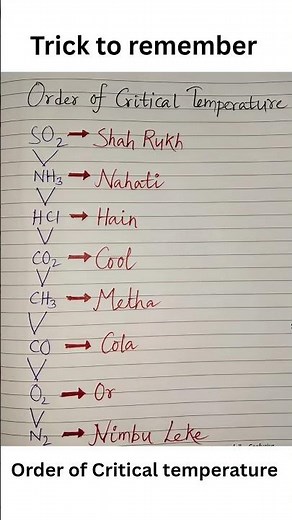 Trick to remember
Order of Critical Temperature
SO₂ → Shah Rukh
NH₃ → Nahati
HCl → Hain
CO₂ → Cool
CH₃ → Metha
CO → Cola
O₂ → Or
N₂ → Nimbu Leke
Order of Critical temperature